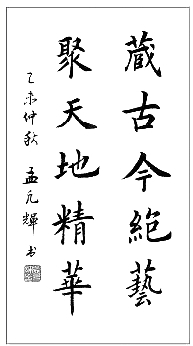 藏古今絕藝
聚天地精華
乙未仲秋 孟凡輝書